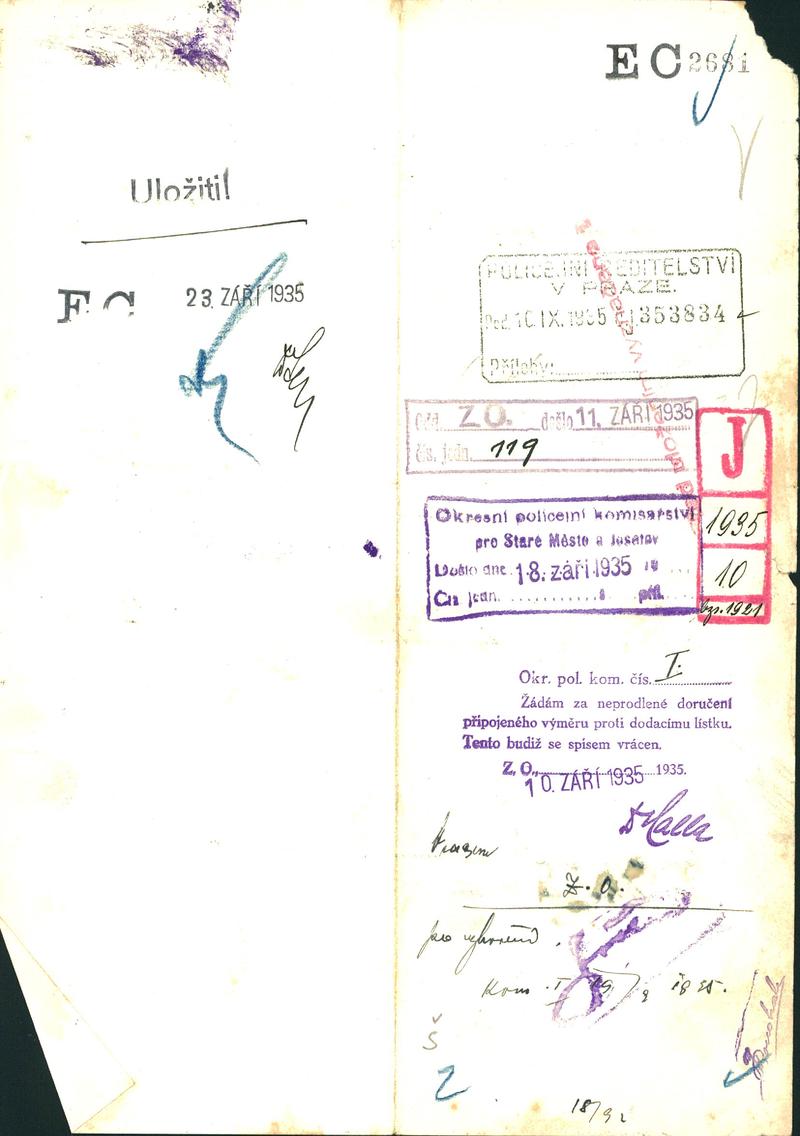 Uložiti!
E C 23. ZÁŘÍ 1935
E C 2681
POLICEJNÍ ŘEDITELSTVÍ
V PRAZE.
Pod. 10. IX. 1935 353834
Přílohy:
Odd. Z O. došlo 11. ZÁŘÍ 1935
čís. jedn. 119
J
1935
10
Okresní policejní komisařství
pro Staré Město a Josefov
Došlo dne 18. září 1935 19
Čís. jedn. příl.
Okr. pol. kom. čís. I.
Žádám za neprodlené doručení
připojeného výměru proti dodacímu lístku.
Tento budiž se spisem vrácen.
Z. O., 1935.
10. ZÁŘÍ 1935
Z. O.
Kom. I 19/9 1935.
Š
2
18/9